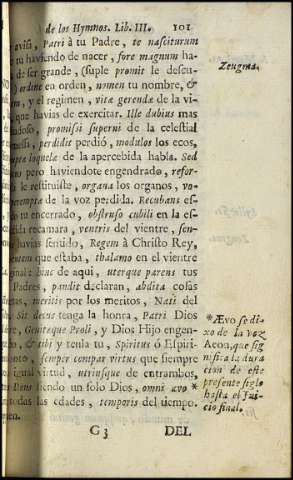 de los Hymnos. Lib. III. 101
avisa, Patri à tu Padre, te nasciturum
tu haviendo de nacer, fore magnum ha-
de ser grande, (suple promit le descu-
ordine en orden, nomen tu nombre, &
y el regimen, vitæ gerendæ de la vi-
que havias de exercitar. Ille dubius mas
dudoso, promissi superni de la celestial
perdidit perdió, modulos los ecos,
loquelæ de la apercebida habla. Sed
pero haviendote engendrado, refor-
le restituiste, organa los organos, vo-
peremptæ de la voz perdida. Recubans es-
tu encerrado, obstruso cubili en la es-
recamara, ventris del vientre, sen-
havias sentido, Regem à Christo Rey,
que estaba, thalamo en el vientre
hinc de aqui, uterque parens tus
Padres, pandit declaran, abdita cosas
meritis por los meritos, Nati del
Sit decus tenga la honra, Patri Dios
Genitæque Proli, y Dios Hijo engen-
& tibi y tenla tu, Spiritus ó Espiri-
semper compar virtus que siempre
igual virtud, utriusque de entrambos,
Deus siendo un solo Dios, omni ævo *
todas las edades, temporis del tiempo.
Zeugma.
*Ævo se di-
xo de la voz
Aeon, que sig-
nifica la dura
cion de este
presente siglo
hasta el Jui-
cio final.
G3 DEL